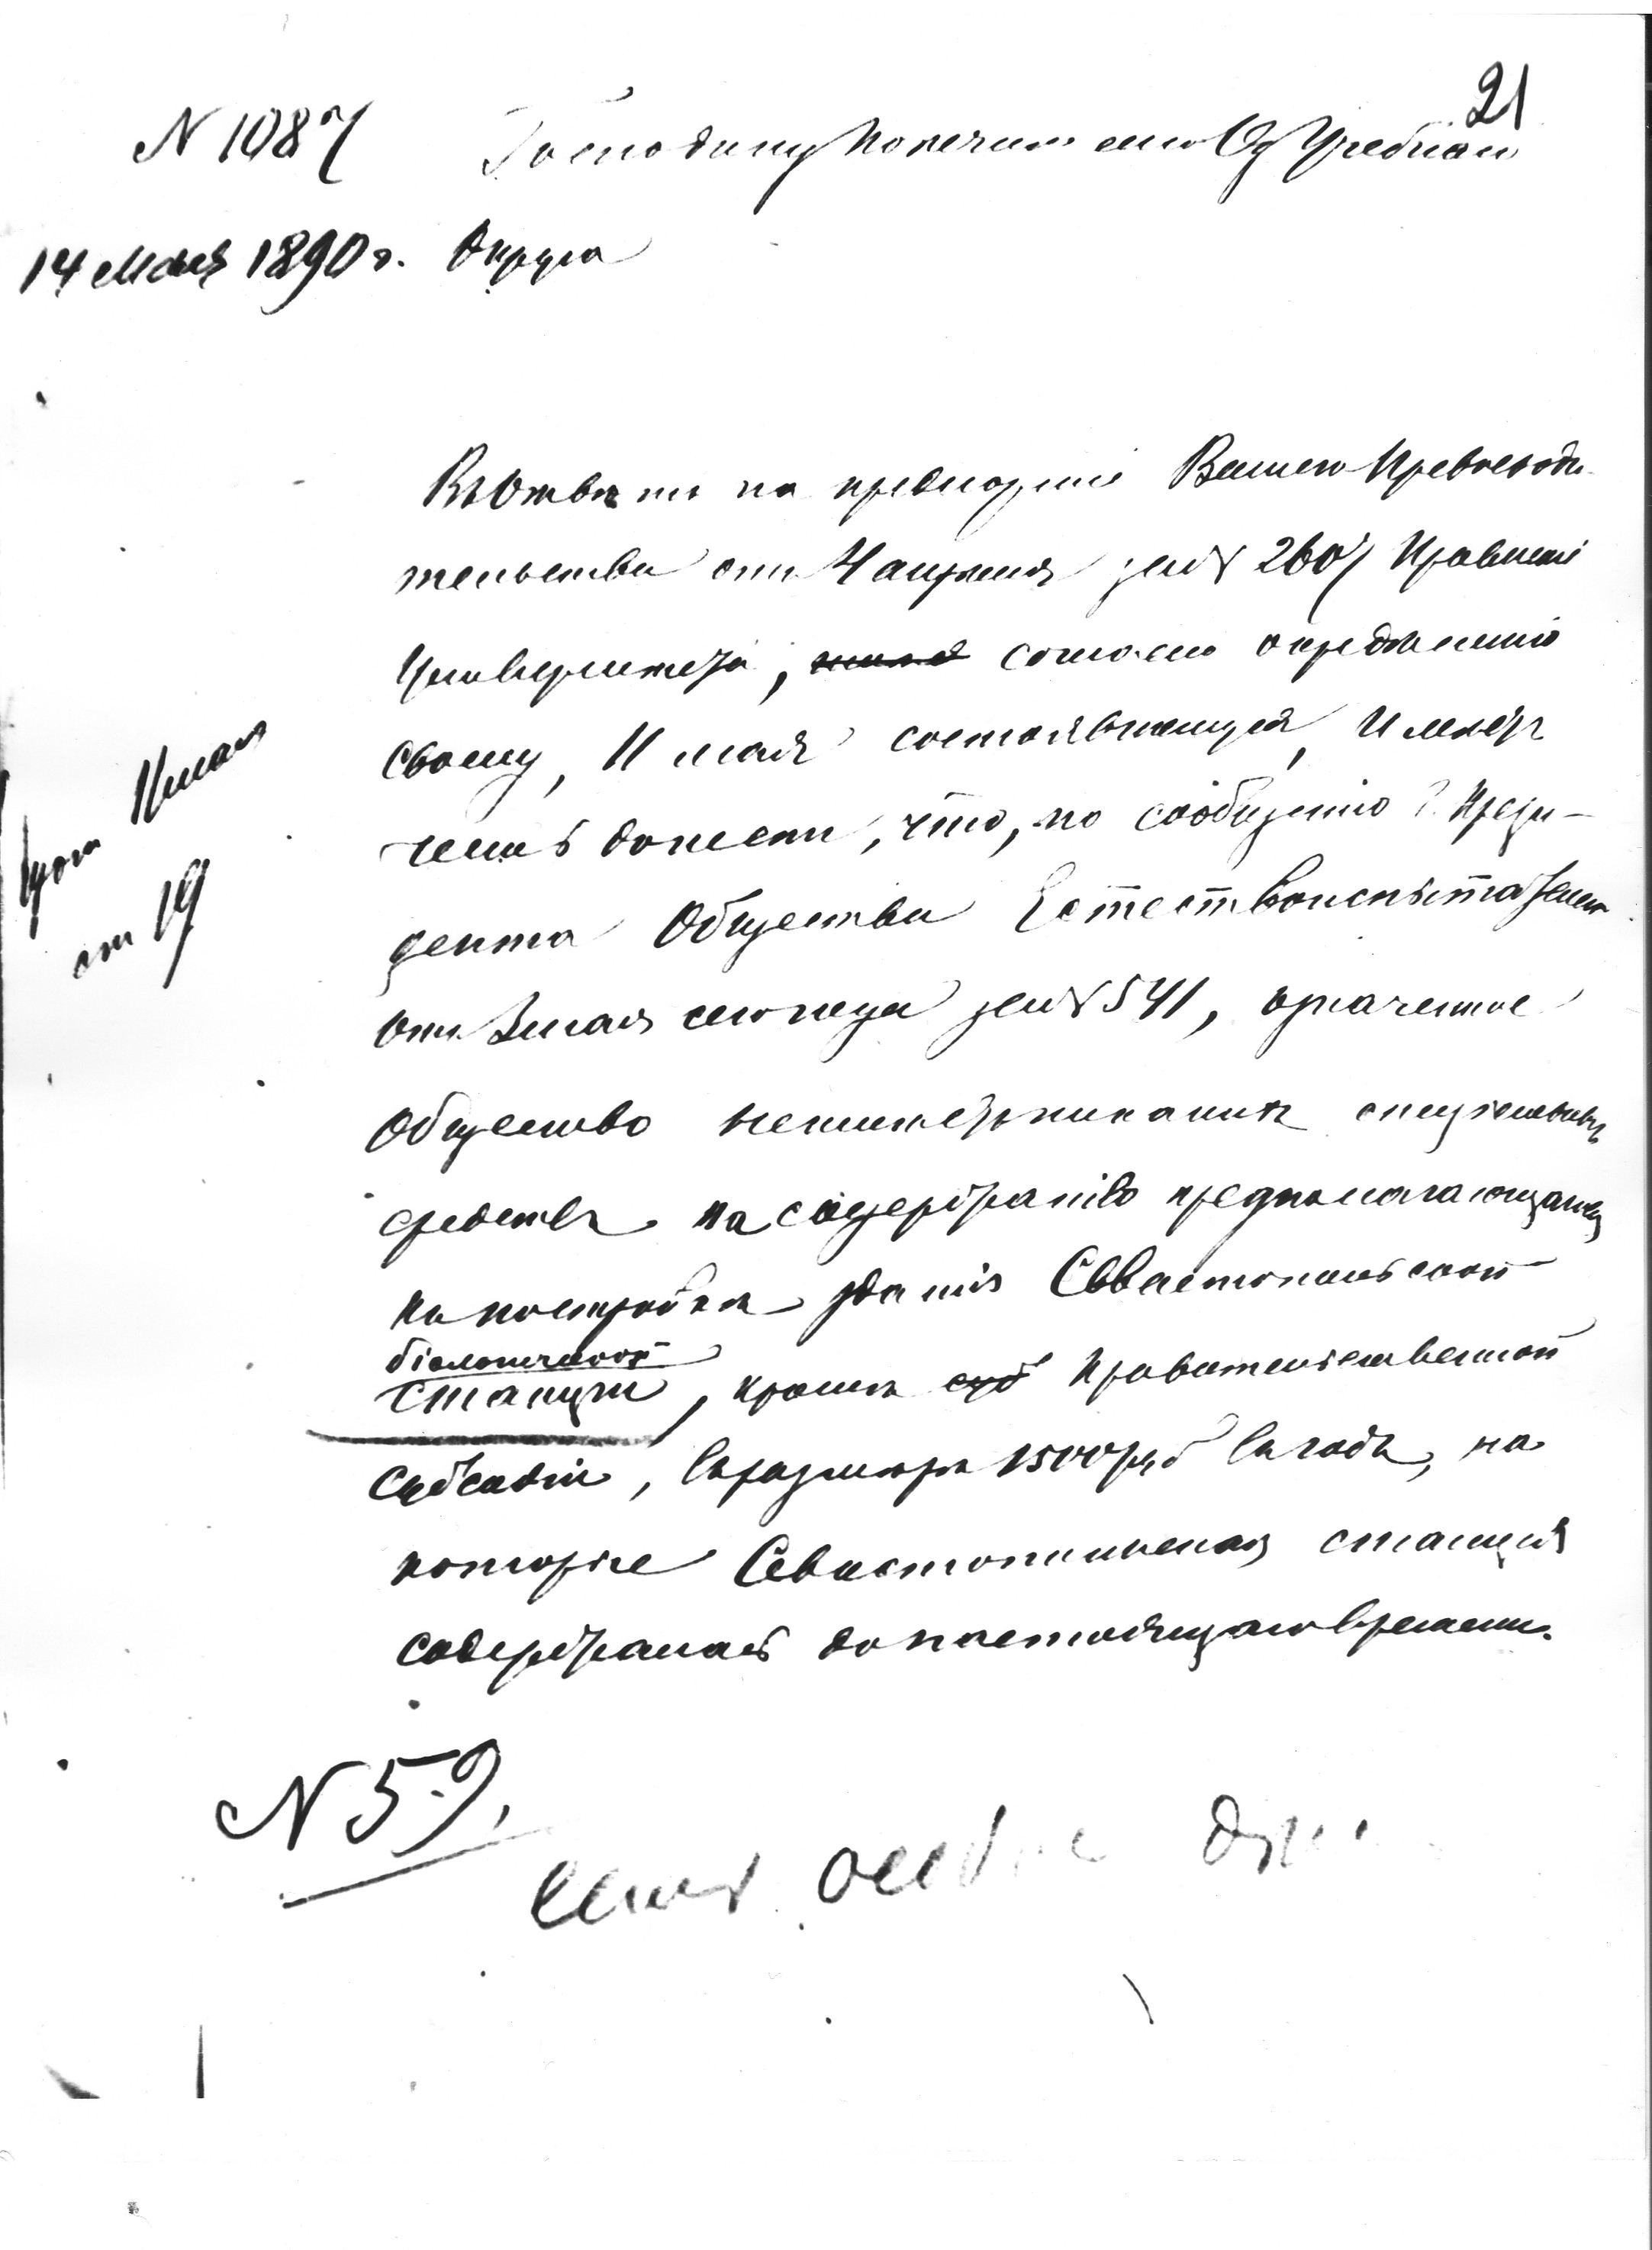 21
N 1087 Господину Попечителю Од Учебнаго
14 Мая 1890 г. Округа
Въ отвѣтъ на предложеніе Вашего Превосходи-
тельства отъ 4 апрѣля за № 2607 Правленіе
Университета, согласно опредѣленію
своему, 11 мая состоявшемуся, имѣетъ
честь донести, что, по сообщенію г. Прези-
дента Общества Естествоиспытателей
отъ 3 мая сего года за № 541, означенное
Общество не имѣетъ никакихъ спеціальныхъ
средствъ на содержаніе предполагающагося
къ постройкѣ зданія Севастопольской
біологической
станціи, кромѣ суб Правительственной
субсидіи, въ размѣрѣ 1500 руб въ годъ, на
которые Севастопольская станція
содержалась до настоящаго времени.
11 мая
ст 19
N 59.